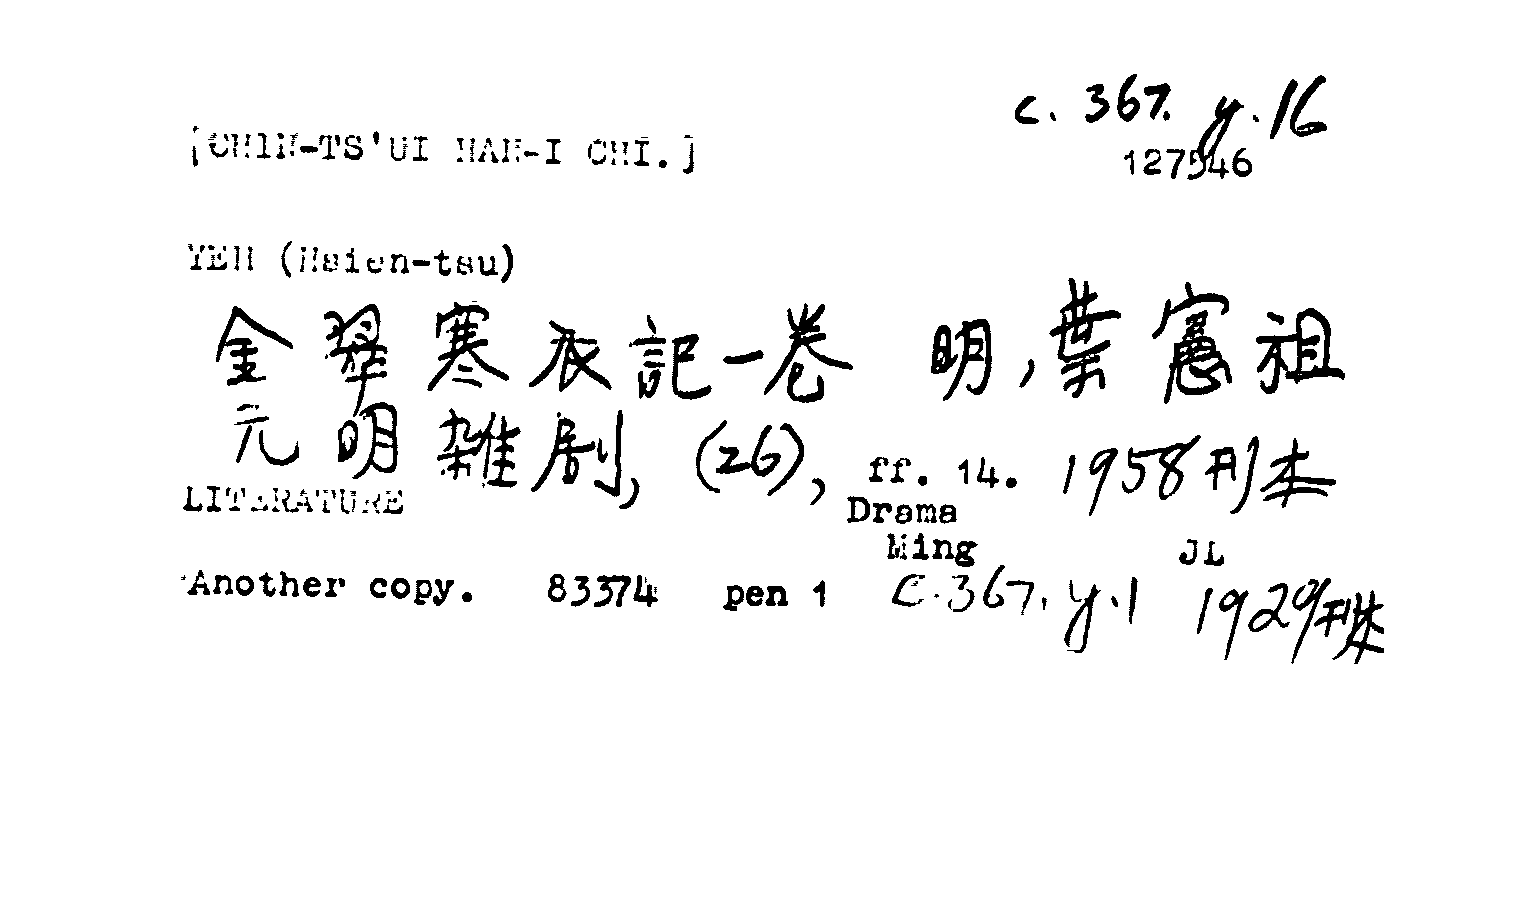 c. 367. y.16
[CHIN-TS'UI HAN-I CHI.]
127546
YEH (Hsien-tsu)
金翠寒衣記一卷 明,葉憲祖
元明雜劇, (26), ff. 14. 1958刊本
LITERATURE
Drama
Ming JL
Another copy. 83374 pen 1 c.367.y.1 1929刊本